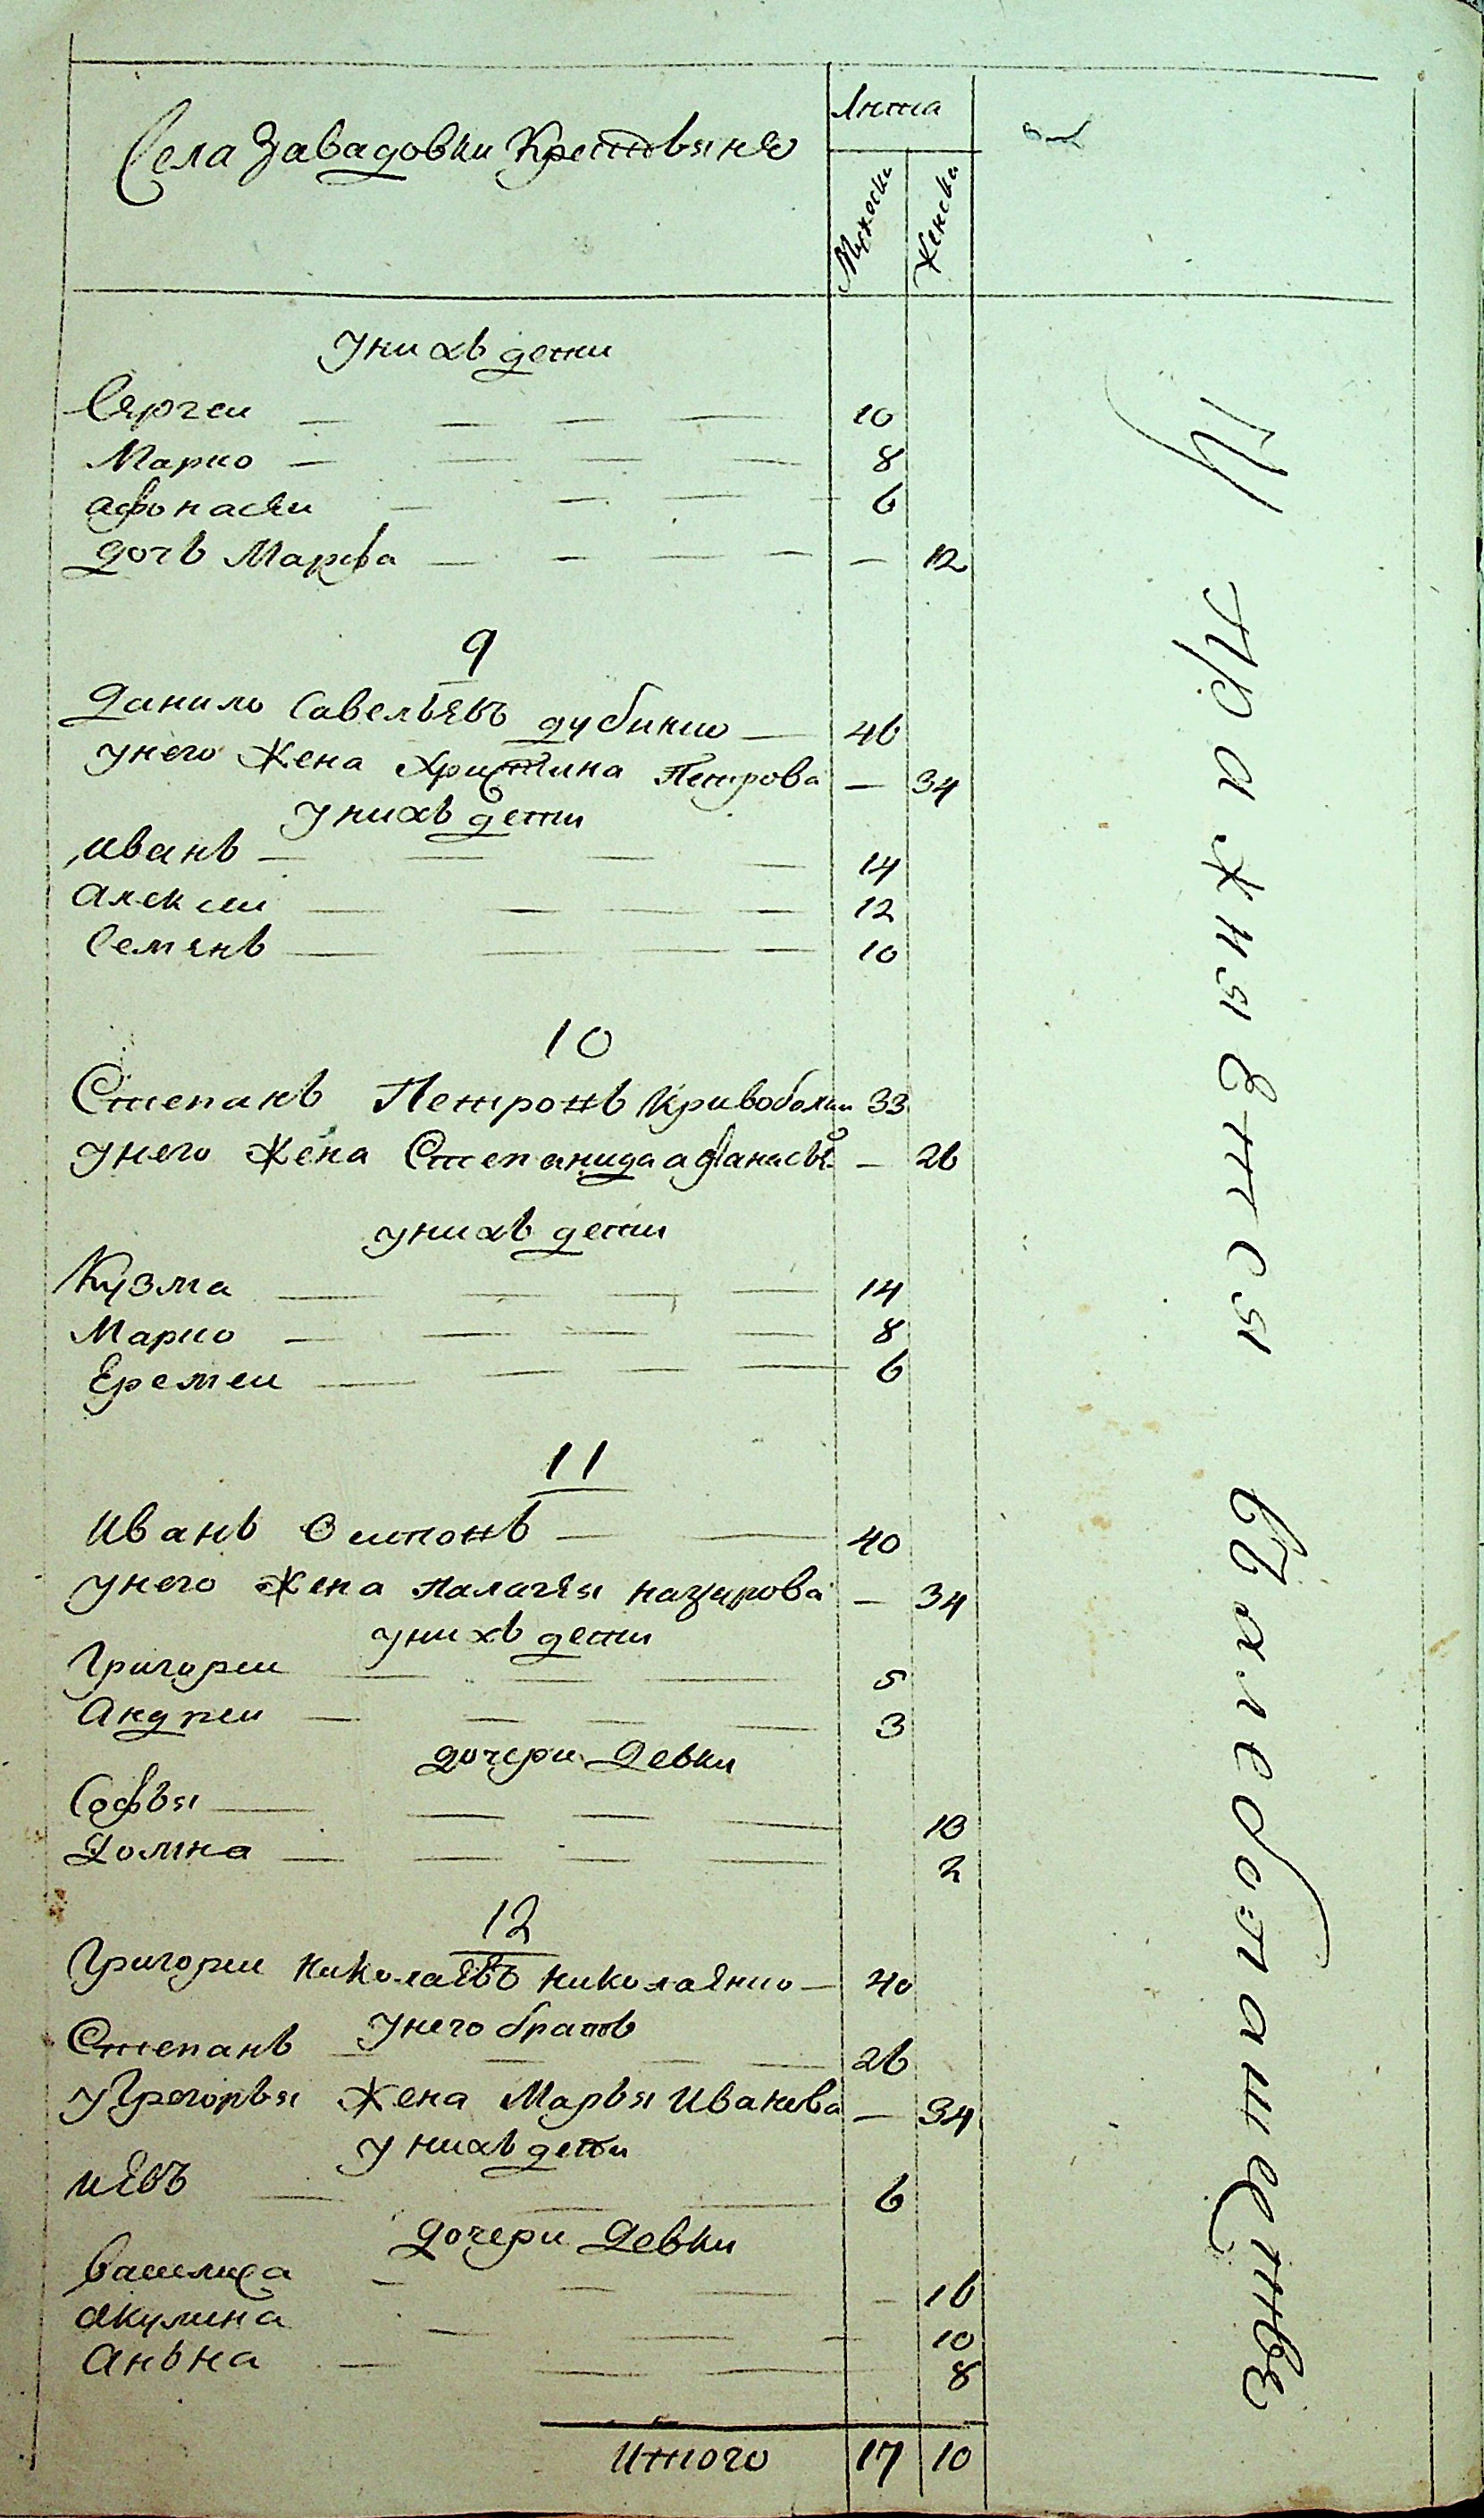 Села Завадовки Крестьяне
Лѣта
Мужеска
Женска
У нихъ дети
Сяргеи 10
Марко 8
афонасеи 6
дочь Марфа — 12
9
Данило Савельевъ дубинко 46
У него Жена Христина Петрова — 34
У нихъ дети
иванъ 14
алексеи 12
Семянъ 10
10
Степанъ Петровъ Кривоболки 33
У него Жена Степанида афанасье — 26
у нихъ дети
Кузма 14
Марко 8
Еремеи 6
11
Иванъ Осиповъ 40
У него Жена Палагея назарова — 34
у нихъ дети
Григореи 5
Андреи 3
дочери Девки
Софья 10
Домна 2
12
Григореи николаевъ николаенко 40
У него братъ
Степанъ 26
у Грегорья Жена Марья Иванова — 34
У нихъ дети
иевъ 6
Дочери Девки
василиса — 16
акулина 10
Аньна 8
Итого 17 10
И праживаютса въ Малебатанистве